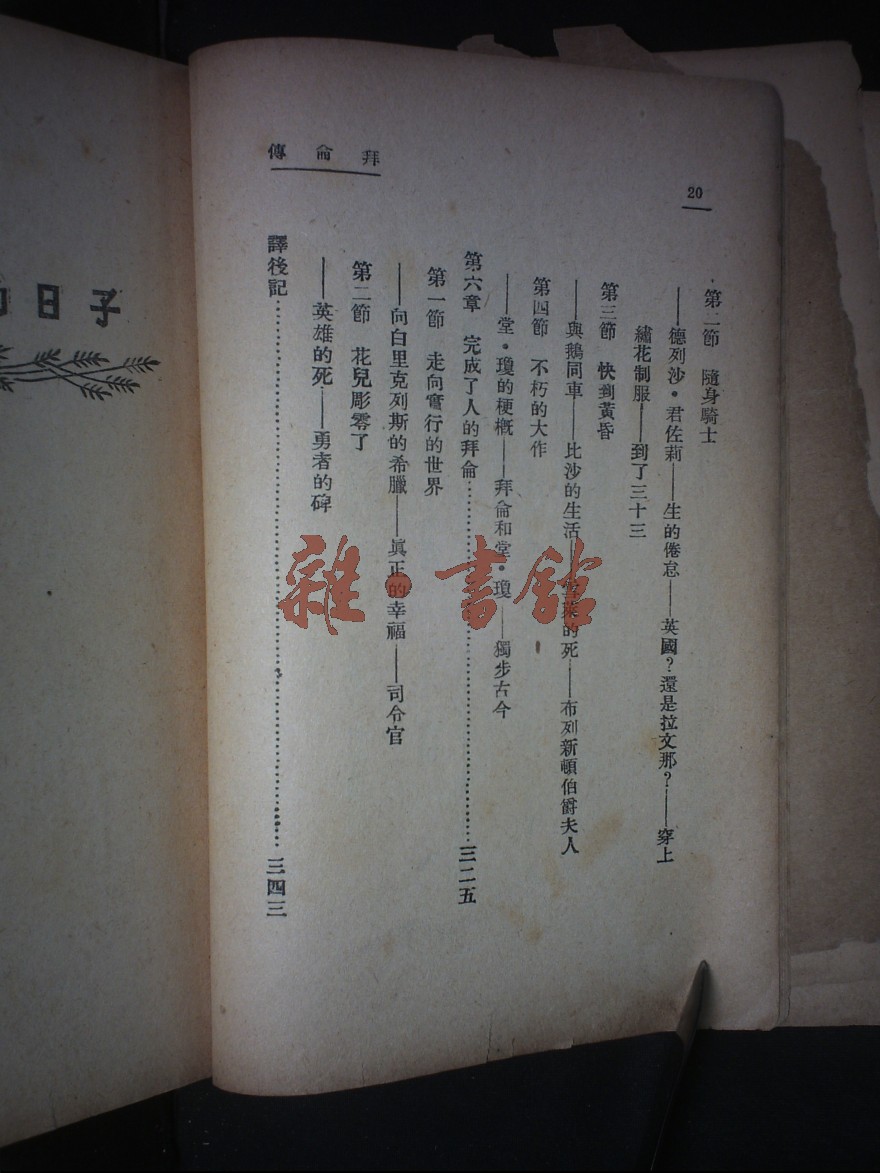 拜倫傳
20
第二節 隨身騎士
——德列沙·君佐莉——生的倦怠——英國?還是拉文那?——穿上
繡花制服——到了三十三
第三節 快到黃昏
——與鵝同車——比沙的生活——雪萊的死——布列新頓伯爵夫人
第四節 不朽的大作
——堂·瓊的梗概——拜倫和堂·瓊——獨步古今
第六章 完成了人的拜倫……三二五
第一節 走向實行的世界
——向白里克列斯的希臘——眞正的幸福——司令官
第二節 花兒彫零了
——英雄的死——勇者的碑
譯後記……三四三
日子
雜·書館